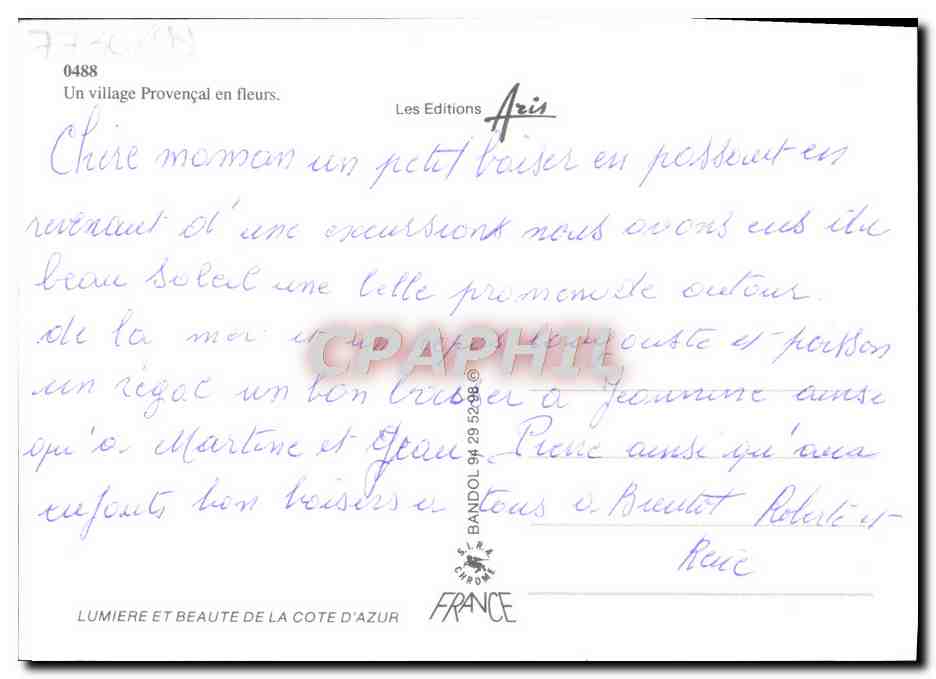 0488
Un village Provençal en fleurs.
Les Editions Aris
Chere maman un petit baiser en passant en
revenant d'une excursions nous avons eus du
beau soleil une belle promenade autour
de la mer et un repas langouste et poisson
un régal un bon baiser a Jeannine ainsi
qu'a Martine et Jean-Pierre ainsi qu'aux
enfants bon baisers a tous a Bientot Roberte et
René
CPAPHIL
BANDOL 94 29 52 98 ©
S.I.R.A. CHROME
FRANCE
LUMIERE ET BEAUTE DE LA COTE D'AZUR